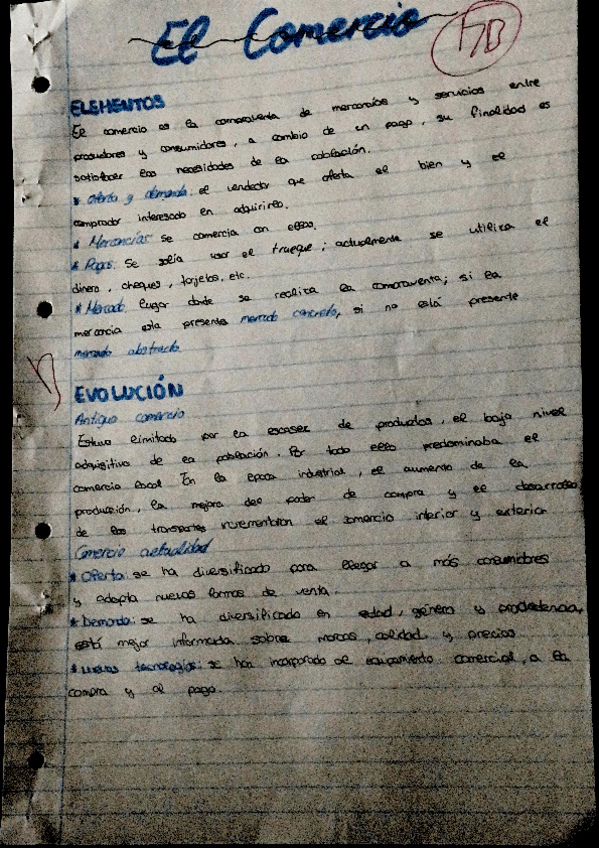 El Comercio
ELEMENTOS
El comercio es la compraventa de mercancías y servicios entre
productores y consumidores, a cambio de un pago, su finalidad es
satisfacer las necesidades de la población.
* Oferta y demanda: el vendedor que oferta el bien y el
comprador interesado en adquirirlo.
* Mercancías: se comercia con ellas.
* Pagos: Se solía usar el trueque; actualmente se utiliza el
dinero, cheques, tarjetas, etc.
* Mercado: lugar donde se realiza la compraventa; si la
mercancia esta presente mercado concreto, si no está presente
mercado abstracto.
EVOLUCIÓN
Antiguo comercio
Estuvo limitado por la escasez de productos, el bajo nivel
adquisitivo de la población. Por todo ello predominaba el
comercio local. En la epoca industrial, el aumento de la
producción, la mejora del poder de compra y el desarrollo
de los transportes incrementaron el comercio interior y exterior
Comercio actualidad
* Oferta: se ha diversificado para llegar a más consumidores
y adopta nuevas formas de venta.
* Demanda: se ha diversificado en edad, género y procedencia,
está mejor informada sobre marcas, calidad y precios
* Nuevas tecnologías: se han incorporado al equipamiento comercial, a la
compra y al pago.